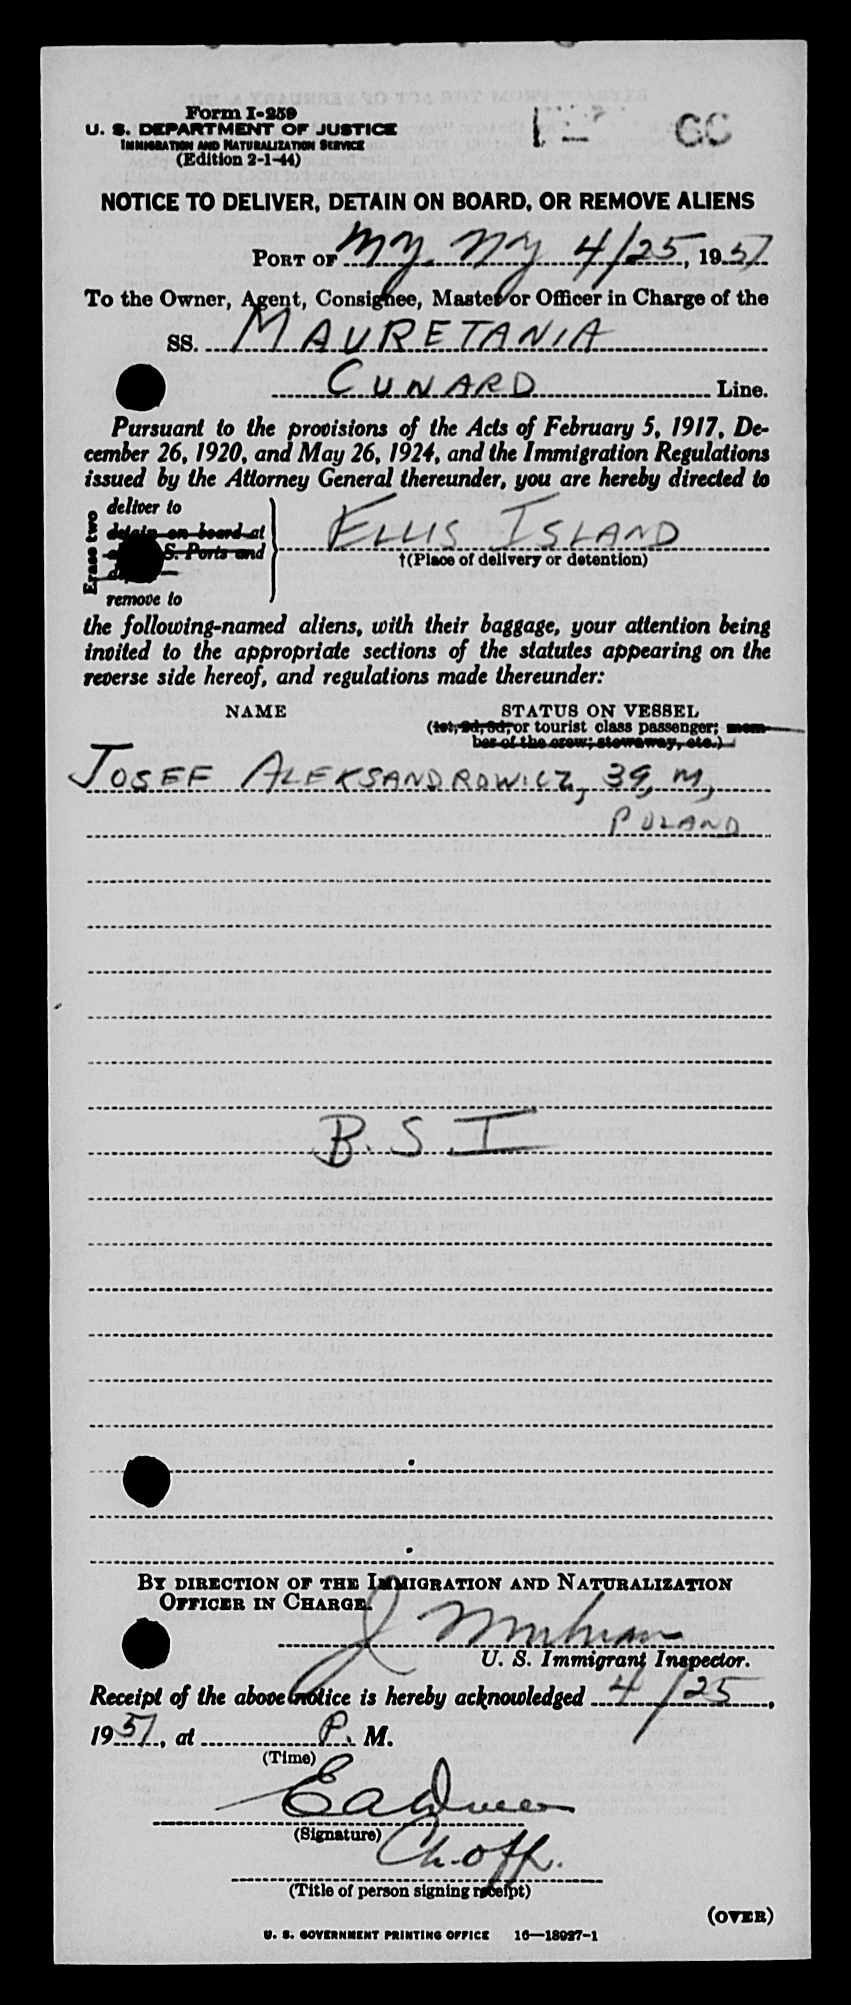 Form I-259
U. S. DEPARTMENT OF JUSTICE
IMMIGRATION AND NATURALIZATION SERVICE
(Edition 2-1-44)
NOTICE TO DELIVER, DETAIN ON BOARD, OR REMOVE ALIENS
PORT OF NY. NY 4/25, 1951
To the Owner, Agent, Consignee, Master or Officer in Charge of the
SS. MAURETANIA
CUNARD Line.
Pursuant to the provisions of the Acts of February 5, 1917, De-
cember 26, 1920, and May 26, 1924, and the Immigration Regulations
issued by the Attorney General thereunder, you are hereby directed to
Erase two
deliver to
detain on board at
S. Ports and
remove to
ELLIS ISLAND
†(Place of delivery or detention)
the following-named aliens, with their baggage, your attention being
invited to the appropriate sections of the statutes appearing on the
reverse side hereof, and regulations made thereunder:
NAME STATUS ON VESSEL
(1st, 2d, 3d, or tourist class passenger; mem-
ber of the crew; stowaway, etc.)
JOSEF ALEKSANDROWICZ, 39, M,
POLAND
B. S. I
BY DIRECTION OF THE IMMIGRATION AND NATURALIZATION
OFFICER IN CHARGE.
U. S. Immigrant Inspector.
Receipt of the above notice is hereby acknowledged 4/25,
1951, at P. M.
(Time)
(Signature)
Ch. off.
(Title of person signing receipt)
(OVER)
U. S. GOVERNMENT PRINTING OFFICE 16—18027-1